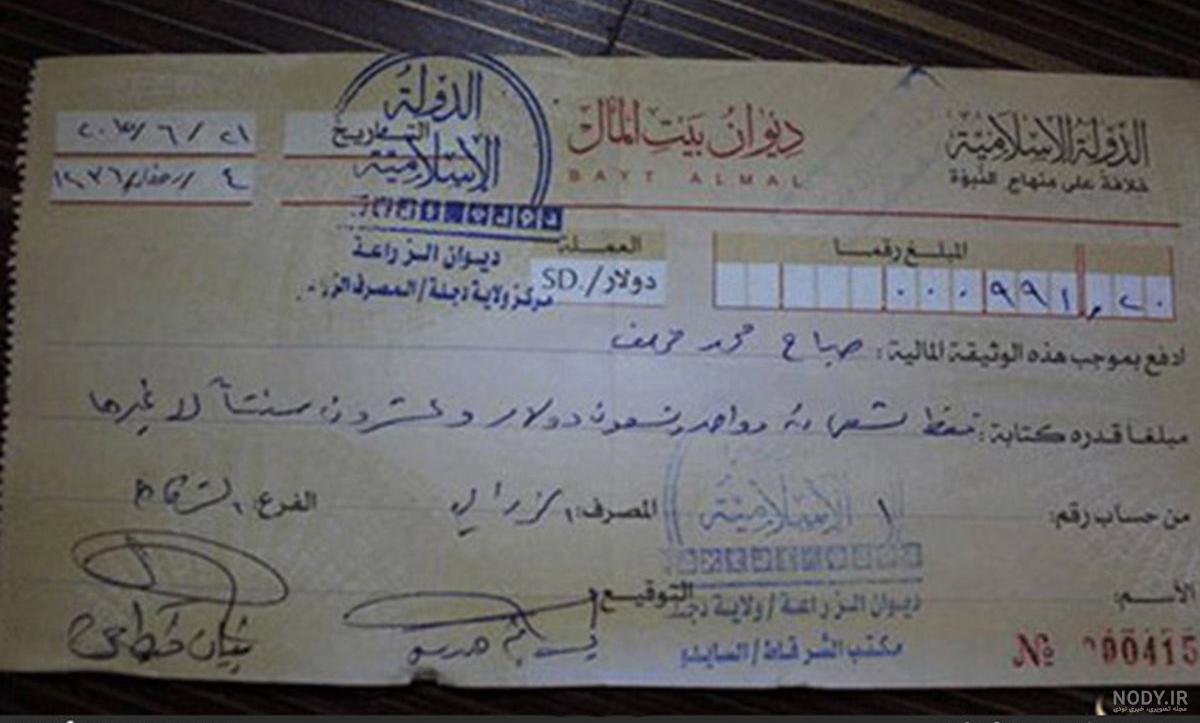 الدولة الإسلامية
خلافة على منهاج النبوة
ديوان بيت المال
BAYT ALMAL
التاريخ
٢١ / ٦ /
٤
الدولة
الإسلامية
ديوان الزراعة
مركز ولاية دجلة / المصرف
المبلغ رقما
٠٠٠٩٩١,٢٠
العملة
دولار / SD.
ادفع بموجب هذه الوثيقة المالية: صباح محمد خلف
مبلغا قدره كتابة: فقط تسعمائة وواحد وتسعون دولار وعشرون سنتاً لا غيرها
من حساب رقم: ١
المصرف:
الفرع: الشرقاط
الإسلامية
الأسم:
التوقيع
ديوان الزراعة / ولاية دجلة
مكتب الشرقاط / السايلو
№ 000415
NODY.IR